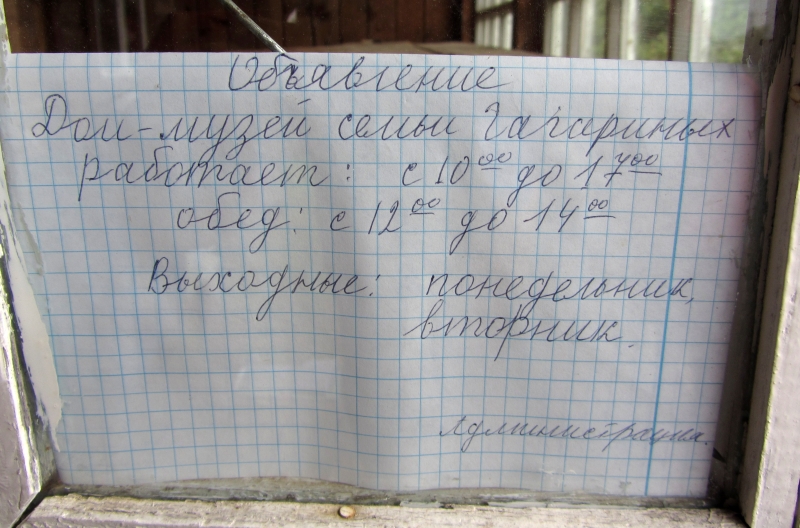 Объявление
Дом-музей семьи Гагариных
работает: с 10⁰⁰ до 17⁰⁰
обед: с 12⁰⁰ до 14⁰⁰
Выходные: понедельник,
вторник.
Администрация.